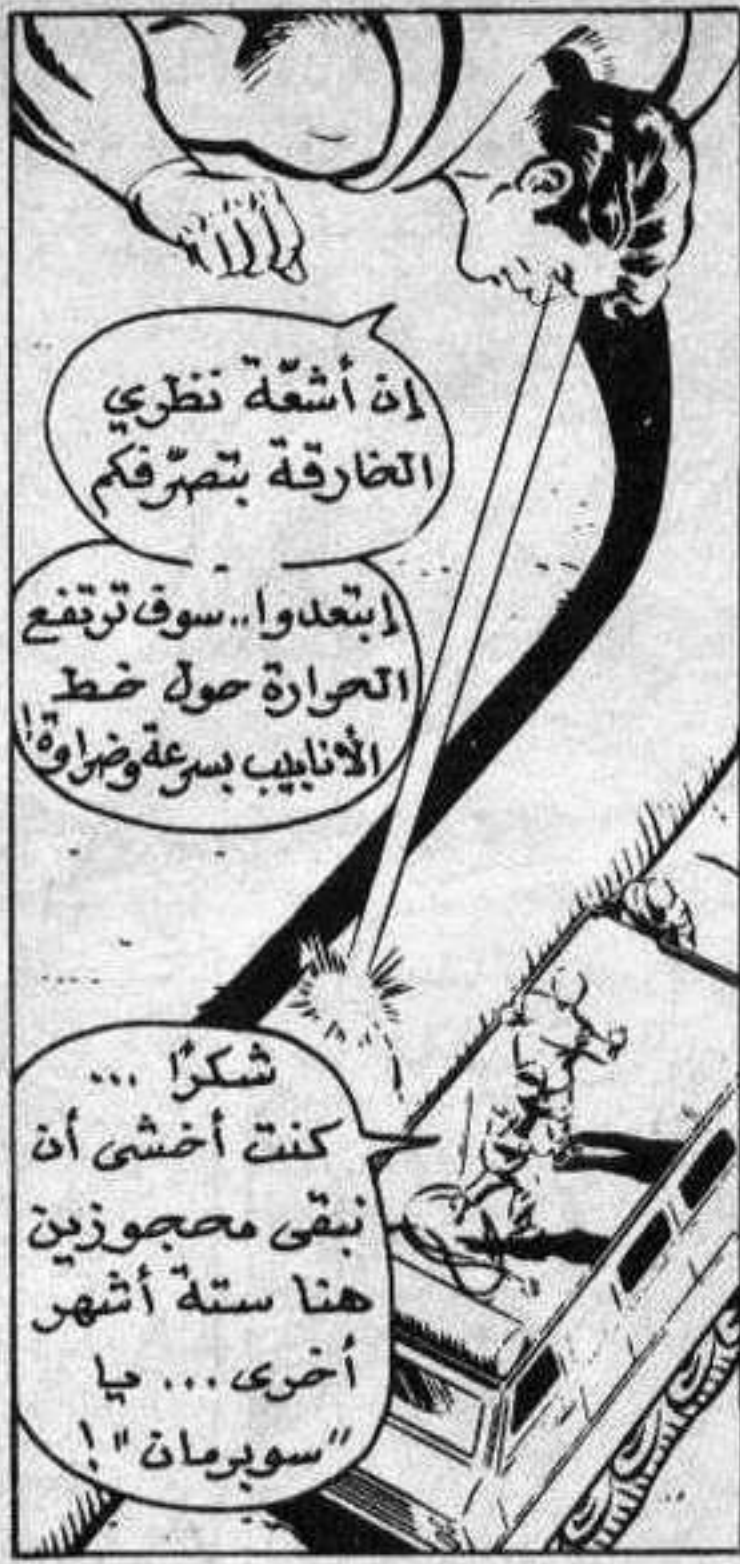 إن أشعّة نظري
الخارقة بتصرّفكم
إبتعدوا.. سوف ترتفع
الحرارة حول خط
الأنابيب بسرعة وضراوة!
شكرًا ...
كنت أخشى أن
نبقى محجوزين
هنا ستة أشهر
أخرى ... يا
"سوبرمان"!